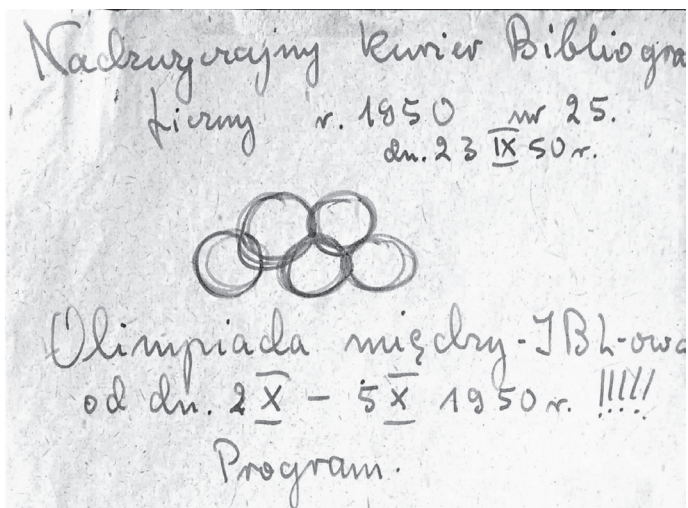 Nadzwyczajny Kurier Bibliogra
ficzny r. 1950 nr 25.
dn. 23 IX 50 r.
Olimpiada między-IBL-owa
od dn. 2 X - 5 X 1950 r. !!!!!
Program.